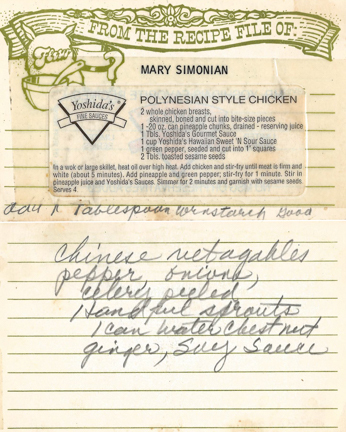 FROM THE RECIPE FILE OF:
MARY SIMONIAN
Yoshida's®
FINE SAUCES
POLYNESIAN STYLE CHICKEN
2 whole chicken breasts,
skinned, boned and cut into bite-size pieces
1 -20 oz. can pineapple chunks, drained - reserving juice
1 Tbls. Yoshida's Gourmet Sauce
1 cup Yoshida's Hawaiian Sweet 'N Sour Sauce
1 green pepper, seeded and cut into 1" squares
2 Tbls. toasted sesame seeds
In a wok or large skillet, heat oil over high heat. Add chicken and stir-fry until meat is firm and
white (about 5 minutes). Add pineapple and green pepper; stir-fry for 1 minute. Stir in
pineapple juice and Yoshida's Sauces. Simmer for 2 minutes and garnish with sesame seeds.
Serves 4
add 1 Tablespoon Cornstarch Good
Chinese vetagables
pepper, onions,
celery peeled
Handful sprouts
1 can water chestnut
ginger, Soey Sauce